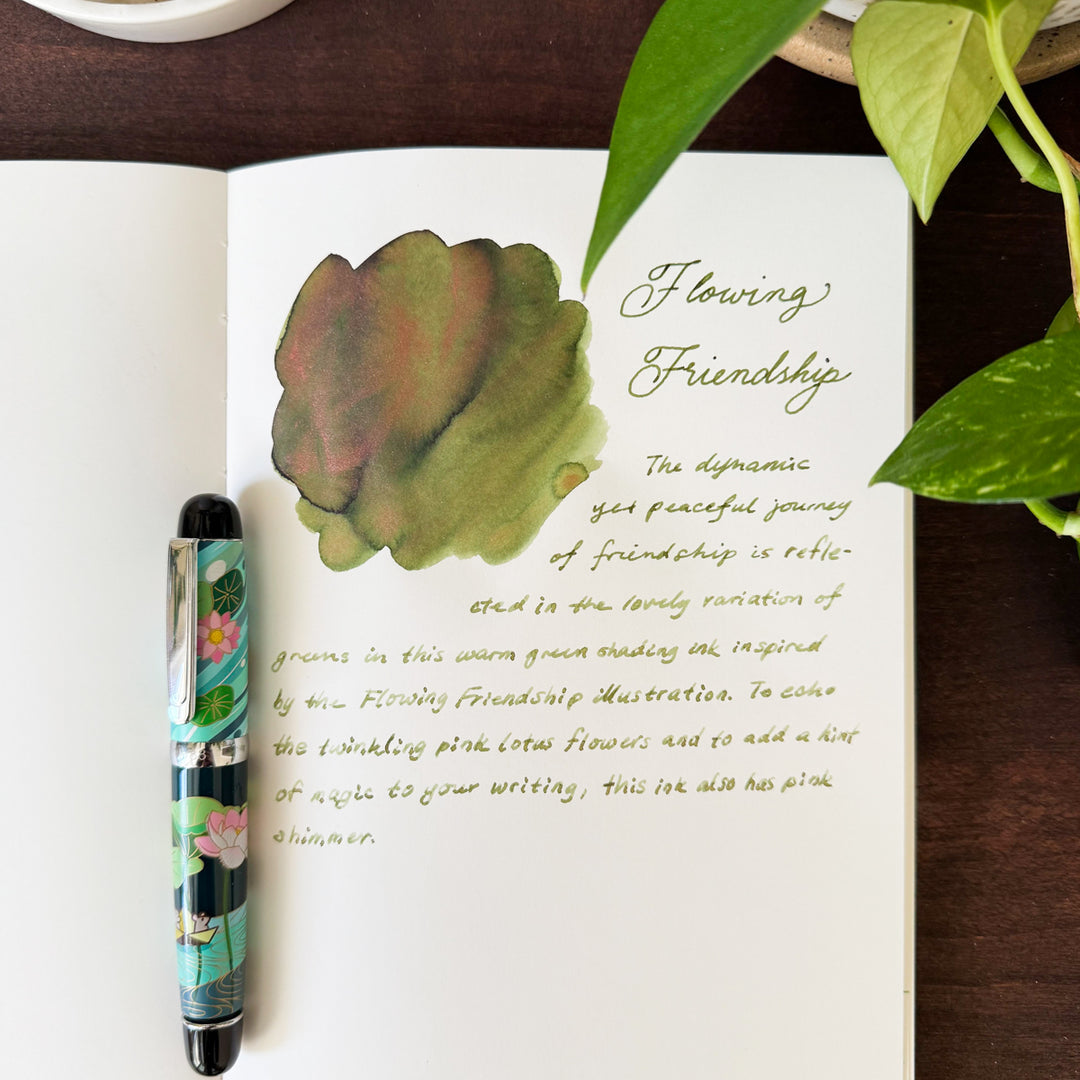 Flowing
Friendship
The dynamic
yet peaceful journey
of friendship is refle-
cted in the lovely variation of
greens in this warm green shading ink inspired
by the Flowing Friendship illustration. To echo
the twinkling pink lotus flowers and to add a hint
of magic to your writing, this ink also has pink
shimmer.